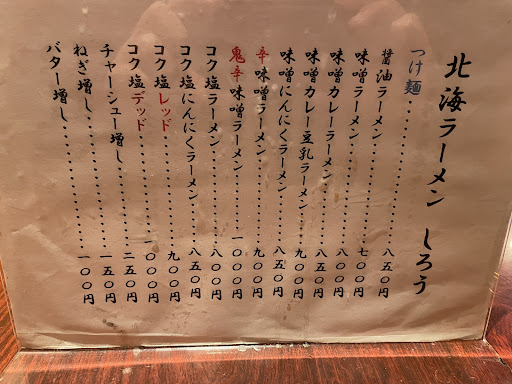 北海ラーメン しろう
つけ麺……………八五〇円
醤油ラーメン……………七〇〇円
味噌ラーメン……………八〇〇円
味噌カレーラーメン……………八五〇円
味噌カレー豆乳ラーメン……………九〇〇円
味噌にんにくラーメン……………八五〇円
辛味噌ラーメン……………九〇〇円
鬼辛味噌ラーメン……………一〇〇〇円
コク塩ラーメン……………八〇〇円
コク塩にんにくラーメン……………八五〇円
コク塩レッド……………九〇〇円
コク塩デッド……………一〇〇〇円
チャーシュー増し……………二五〇円
ねぎ増し……………一五〇円
バター増し……………一〇〇円